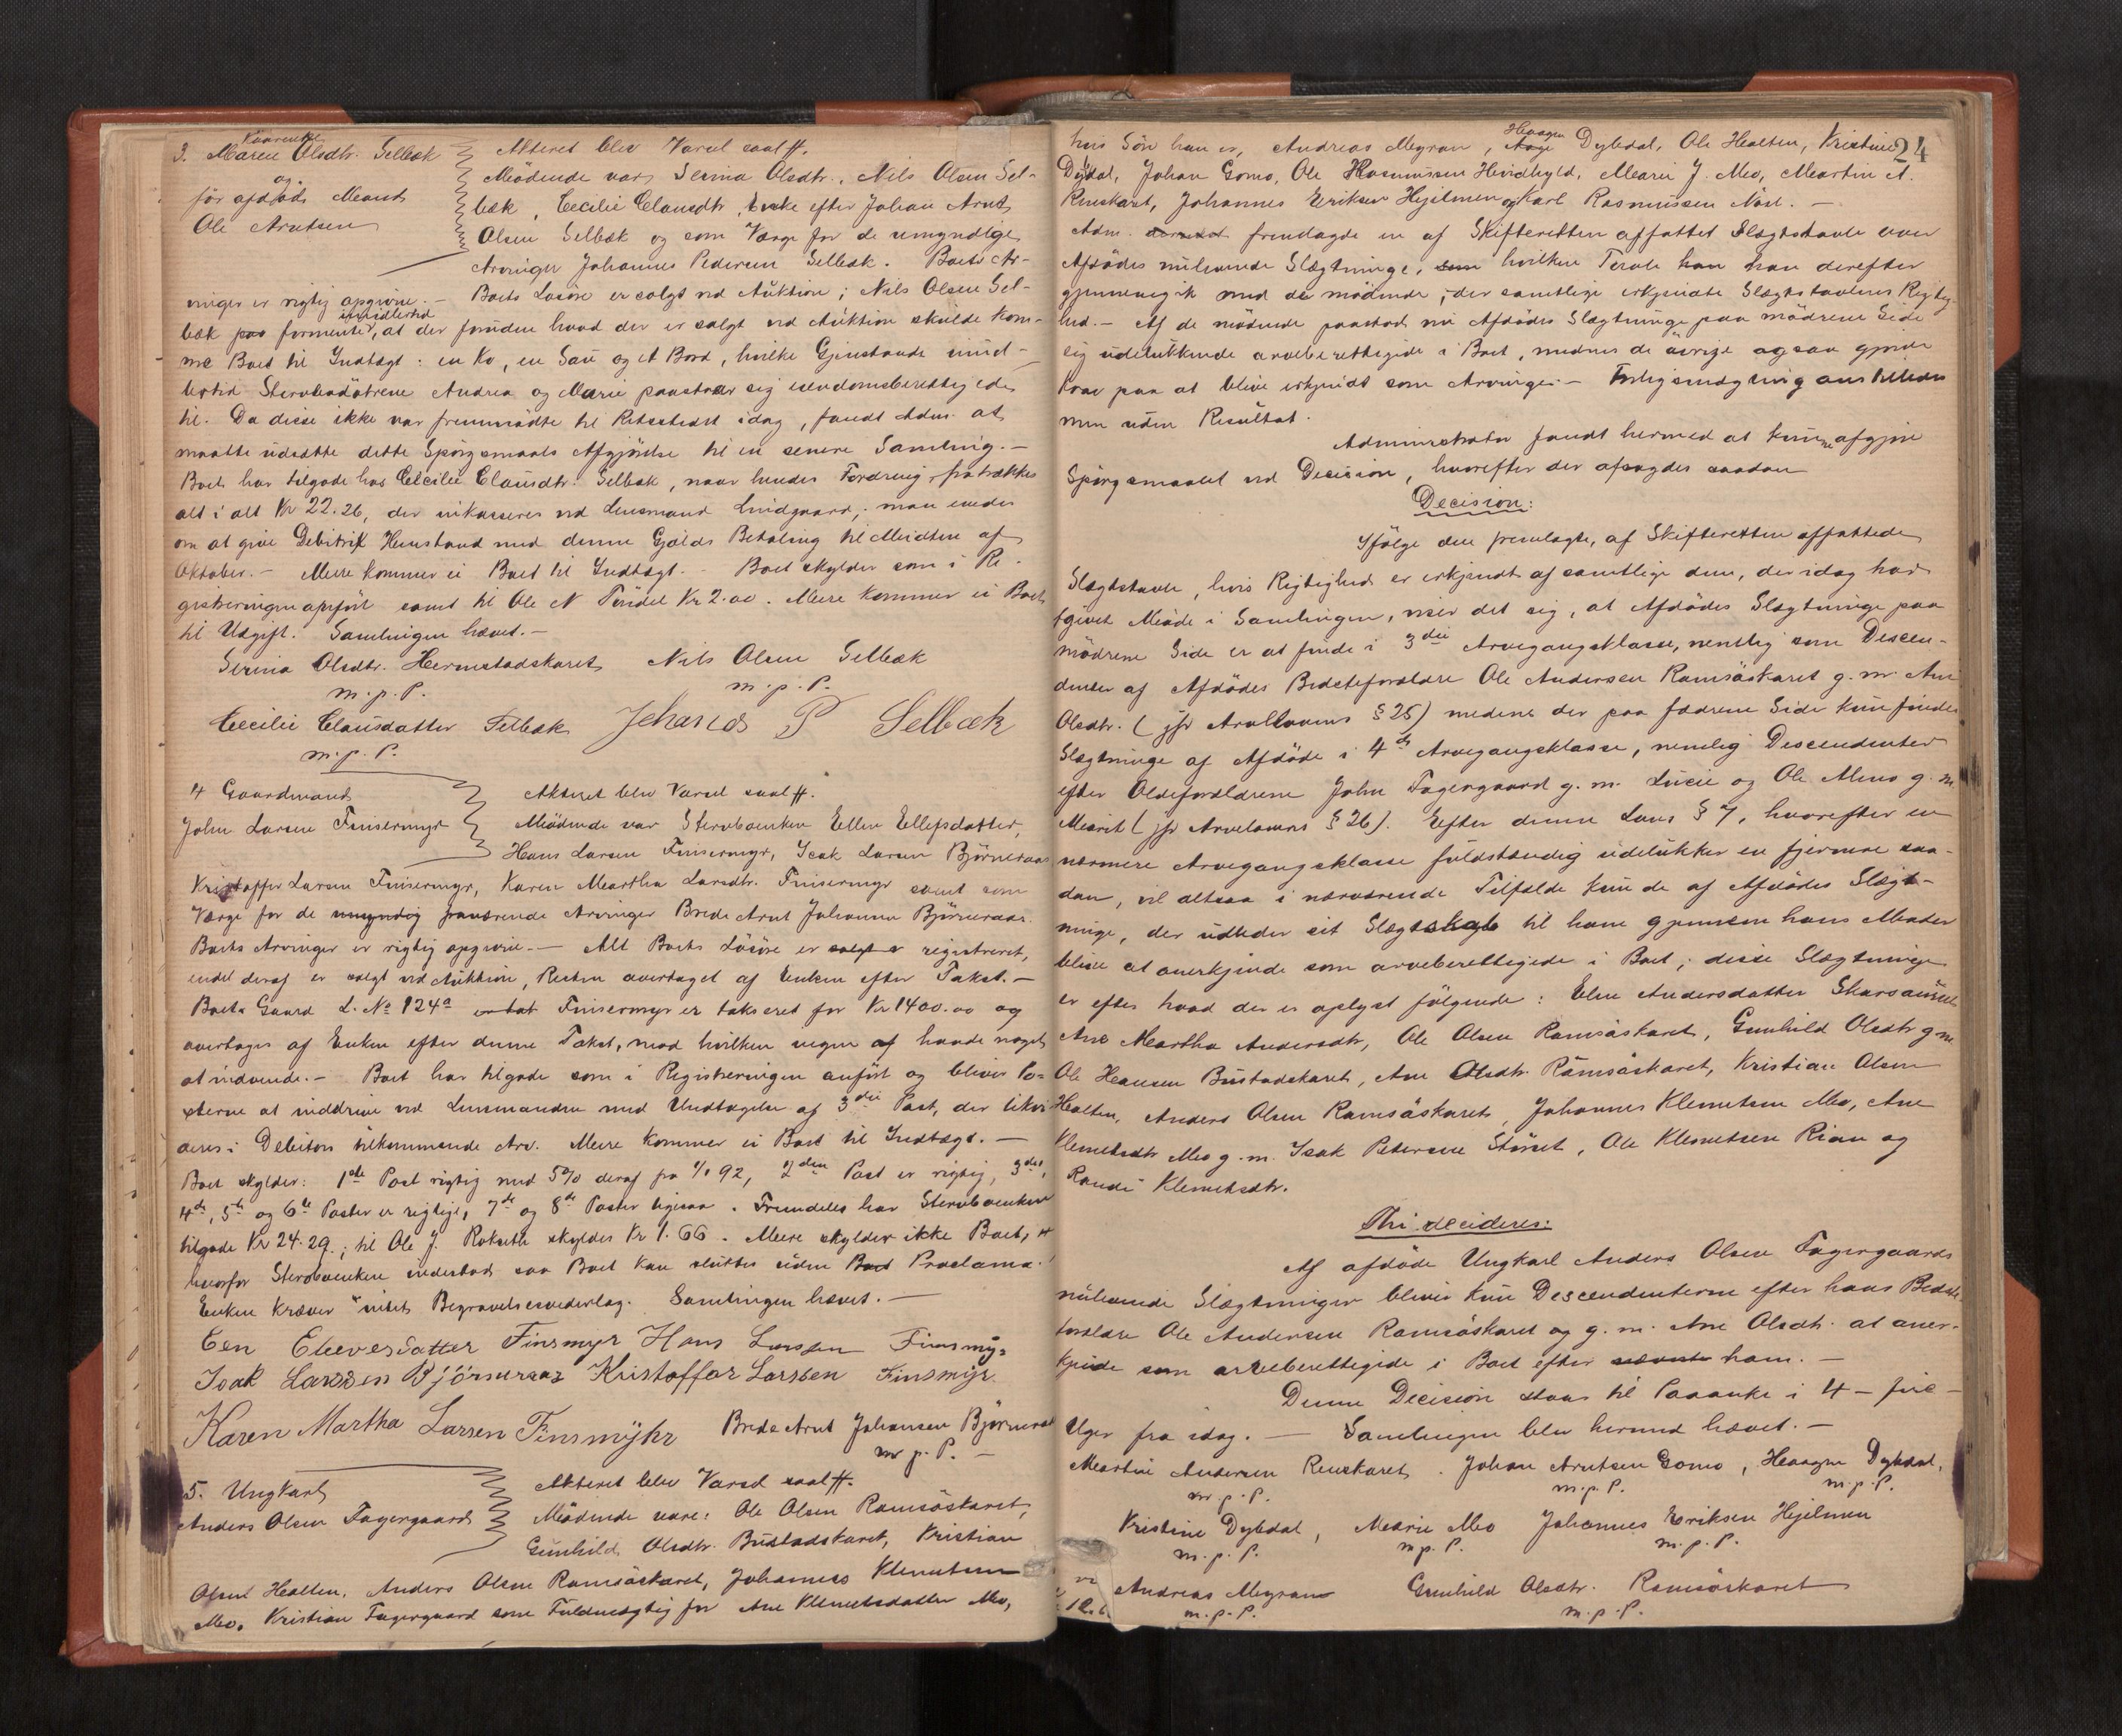 3. Maren Olsdtr. Selbæk
og
før afdøde Mand
Ole Arntsen
Akteret blev Varsel saalt.
Mødende var Serina Olsdtr., Nils Olsen Sel-
bæk, Cecilie Clausdtr, Enke efter Johan Arnt
Olsen Selbæk og som Værge for de umyndige
Arvinger Johannes Pedersen Selbæk. Boets Ar-
vinger er rigtig opgivne. — Boets Løsøre er solgt ved Auktion; Nils Olsen Sel-
bæk paa formente imidlertid, at der foruden hvad der er solgt ved Auktion skulde kom-
me Boet til Indtægt: en Ko, en Sau og et Bord, hvilke Gjenstande imid-
lertid Stervbodøtrene Andrea og Marie paastaar sig eiendomsberettigede
til. Da disse ikke var fremmødte til Retsstedet idag, fandt Adm. at
maatte udsætte dette Spørgsmaals Afgjørelse til en senere Samling. —
Boet har tilgode hos Cecilie Clausdtr. Selbæk, naar hendes Fordring fratrækkes
alt i alt Kr 22.26, der inkasseres ved Lensmand Lindgaard; man enedes
om at give Debitrix Henstand med denne Gjælds Betaling til Midten af
Oktober. — Mere kommer ei Boet til Indtægt. — Boet skylder som i Re-
gistreringen anført samt til Ole N Tendel Kr 2.00. Mere kommer ei Boet
til Udgift. Samlingen hævet. —
Serina Olsdtr. Hermstadskaret Nils Olsen Selbæk
m. p. P. m. p. P.
Cecilie Clausdatter Selbæk Johanes P Selbæk
m. p. P.
4 Gaardmand
John Larsen Finsermyr
Akteret blev Varsel saalt.
Mødende var Stervboenken Ellen Ellefsdatter,
Hans Larsen Finsermyr, Isak Larsen Bjørneraas
Kristoffer Larsen Finsermyr, Karen Martha Larsdtr. Finsermyr samt som
Værge for de umyndig fraværende Arvinger Brede Arnt Johansen Bjørneraas.
Boets Arvinger er rigtig opgivne. — Alt Boets Løsøre er solgt er registreret,
endel deraf er solgt ved Auktion, Resten overtaget af Enken efter Takst. —
Boets Gaard L. No 124a Finsermyr er takseret for Kr 1400.00 og
overtages af Enken efter denne Takst, mod hvilken ingen af havde noget
at indvende. — Boet har tilgode som i Registreringen anført og bliver Po-
sterne at inddrive ved Lensmanden med Undtagelse af 3die Post, der likvi-
deres i Debitors tilkommende Arv. Mere kommer ei Boet til Indtægt. —
Boet skylder: 1ste Post rigtig med 5% deraf fra 1/1 92, 2den Post er rigtig, 3die,
4de, 5te og 6te Poster er rigtige, 7de og 8de Poster ligesaa. Fremdeles har Stervboenken
tilgode Kr 24.29.; til Ole J. Rokseth skyldes Kr 1.66. Mere skylder ikke Boet,
hvorfor Stervboenken indestod saa Boet kan sluttes uden Boet Proclama.
Enken kræver intet Begravelsesvederlag. Samlingen hævet. —
Een Eleevesdatter Finsmyr Hans Larssen Finsmyr
Isak Larssen Bjørneraas Kristoffer Larssen Finsmyr
Karen Martha Larsen Finsmyhr Brede Arnt Johansen Bjørneraas
m. p. P. —
5. Ungkarl
Anders Olsen Fagergaard
Akteret blev Varsel saalt.
Mødende vare: Ole Olsen Ramsøskaret,
Gunhild Olsdtr. Bustadskaret, Kristian
Olsen Halten, Anders Olsen Ramsøskaret, Johannes Klemetsen
Mo, Kristian Fagergaard som Fuldmægtig for Ane Klemetsdatter Mo,
24
hvis Søn han er, Andreas Myran, Haagen Dybdal, Ole Halten, Kristine
Dybdal, Johan Gomo, Ole Rasmussen Hindhyld, Marie J. Mo, Martin A.
Renskaret, Johannes Eriksen Hjelmen og Karl Rasmussen Næsl. —
Adm. fremlagde en af Skifteretten affattet Slægtstavle over
Afdødes nulevende Slægtninge, som hvilken Tavle han derefter
gjennemgik med de mødende, der samtlige erkjendte Slægtstavlens Rigtig-
hed. — Af de mødende paastod nu Afdødes Slægtninge paa mødrene Side
sig udelukkende arveberettigede i Boet, medens de øvrige ogsaa gjorde
Krav paa at blive erkjendt som Arvinger. — Forligsmægling anstilledes
men uden Resultat.
Administrator fandt hermed at kunne afgjøre
Spørgsmaalet ved Decision, hvorefter der afsagdes saadan
Decision:
Ifølge den fremlagte, af Skifteretten affattede
Slægtstavle, hvis Rigtighed er erkjendt af samtlige dem, der idag har
givet Møde i Samlingen, viser det sig, at Afdødes Slægtninge paa
mødrene Side er at finde i 3die Arvegangsklasse, nemlig som Descen-
denter af Afdødes Bedsteforældre Ole Andersen Ramsøskaret g. m. Ane
Olsdtr. (jfr Arvelovens § 25) medens der paa fædrene Side kun findes
Slægtninge af Afdøde i 4de Arvegangsklasse, nemlig Descendenter
efter Oldeforældrene John Fagergaard g. m. Lucie og Ole Meno g. m.
Marit (jfr Arvelovens § 26). Efter denne Lovs § 7, hvorefter en
nærmere Arvegangsklasse fuldstændig udelukker en fjernere saa-
dan, vil altsaa i nærværende Tilfælde kun de af Afdødes Slægt-
ninge, der udleder sit Slægtskab til ham gjennem hans Moder
blive at anerkjende som arveberettigede i Boet; disse Slægtninge
er efter hvad der er oplyst følgende: Elen Andersdatter
Ane Martha Andersdtr, Ole Olsen Ramsøskaret, Gunhild Olsdtr g m
Ole Hansen Bustadskaret, Ane Olsdtr. Ramsøskaret, Kristian Olsen
Halten, Anders Olsen Ramsøskaret, Johannes Klemetsen Mo, Ane
Klemetsdtr Mo g. m. Isak Petersen Størset, Ole Klemetsen Rian og
Randi Klemetsdtr.
Thi decideres:
Af afdøde Ungkarl Anders Olsen Fagergaards
nulevende Slægtninger bliver kun Descendenterne efter hans Bedste-
forældre Ole Andersen Ramsøskaret og g. m. Ane Olsdtr. at aner-
kjende som arveberettigede i Boet efter ham. —
Denne Decision staar til Paaanke i 4 – fire –
Uger fra idag. — Samlingen blev hermed hævet. —
Martin Andersen Renskaret. Johan Arntsen Gomo, Haagen Dybdal,
m. p. P. m. p. P. m. p. P.
Kristine Dybdal, Marie Mo Johannes Eriksen Hjelmen
m. p. P. m p. P. m. p. P.
Andreas Myran Gunhild Olsdtr. Ramsøskaret
m. p. P. m. p. P.